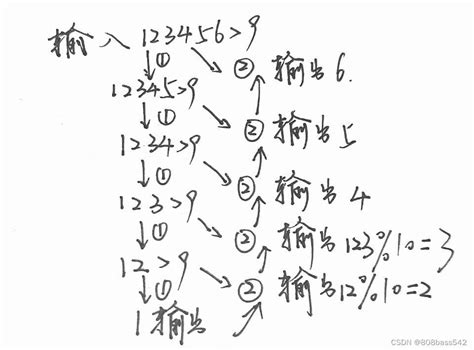 输入 123456>9
↓① ↘ ② 输出6.
12345>9
↓① ↘ ② 输出5
1234>9
↓① ↘ ② 输出4
123>9
↓① ↘ ② 输出123%10=3
12>9
↓① ↘ ② 输出12%10=2
1输出
CSDN @808bass542